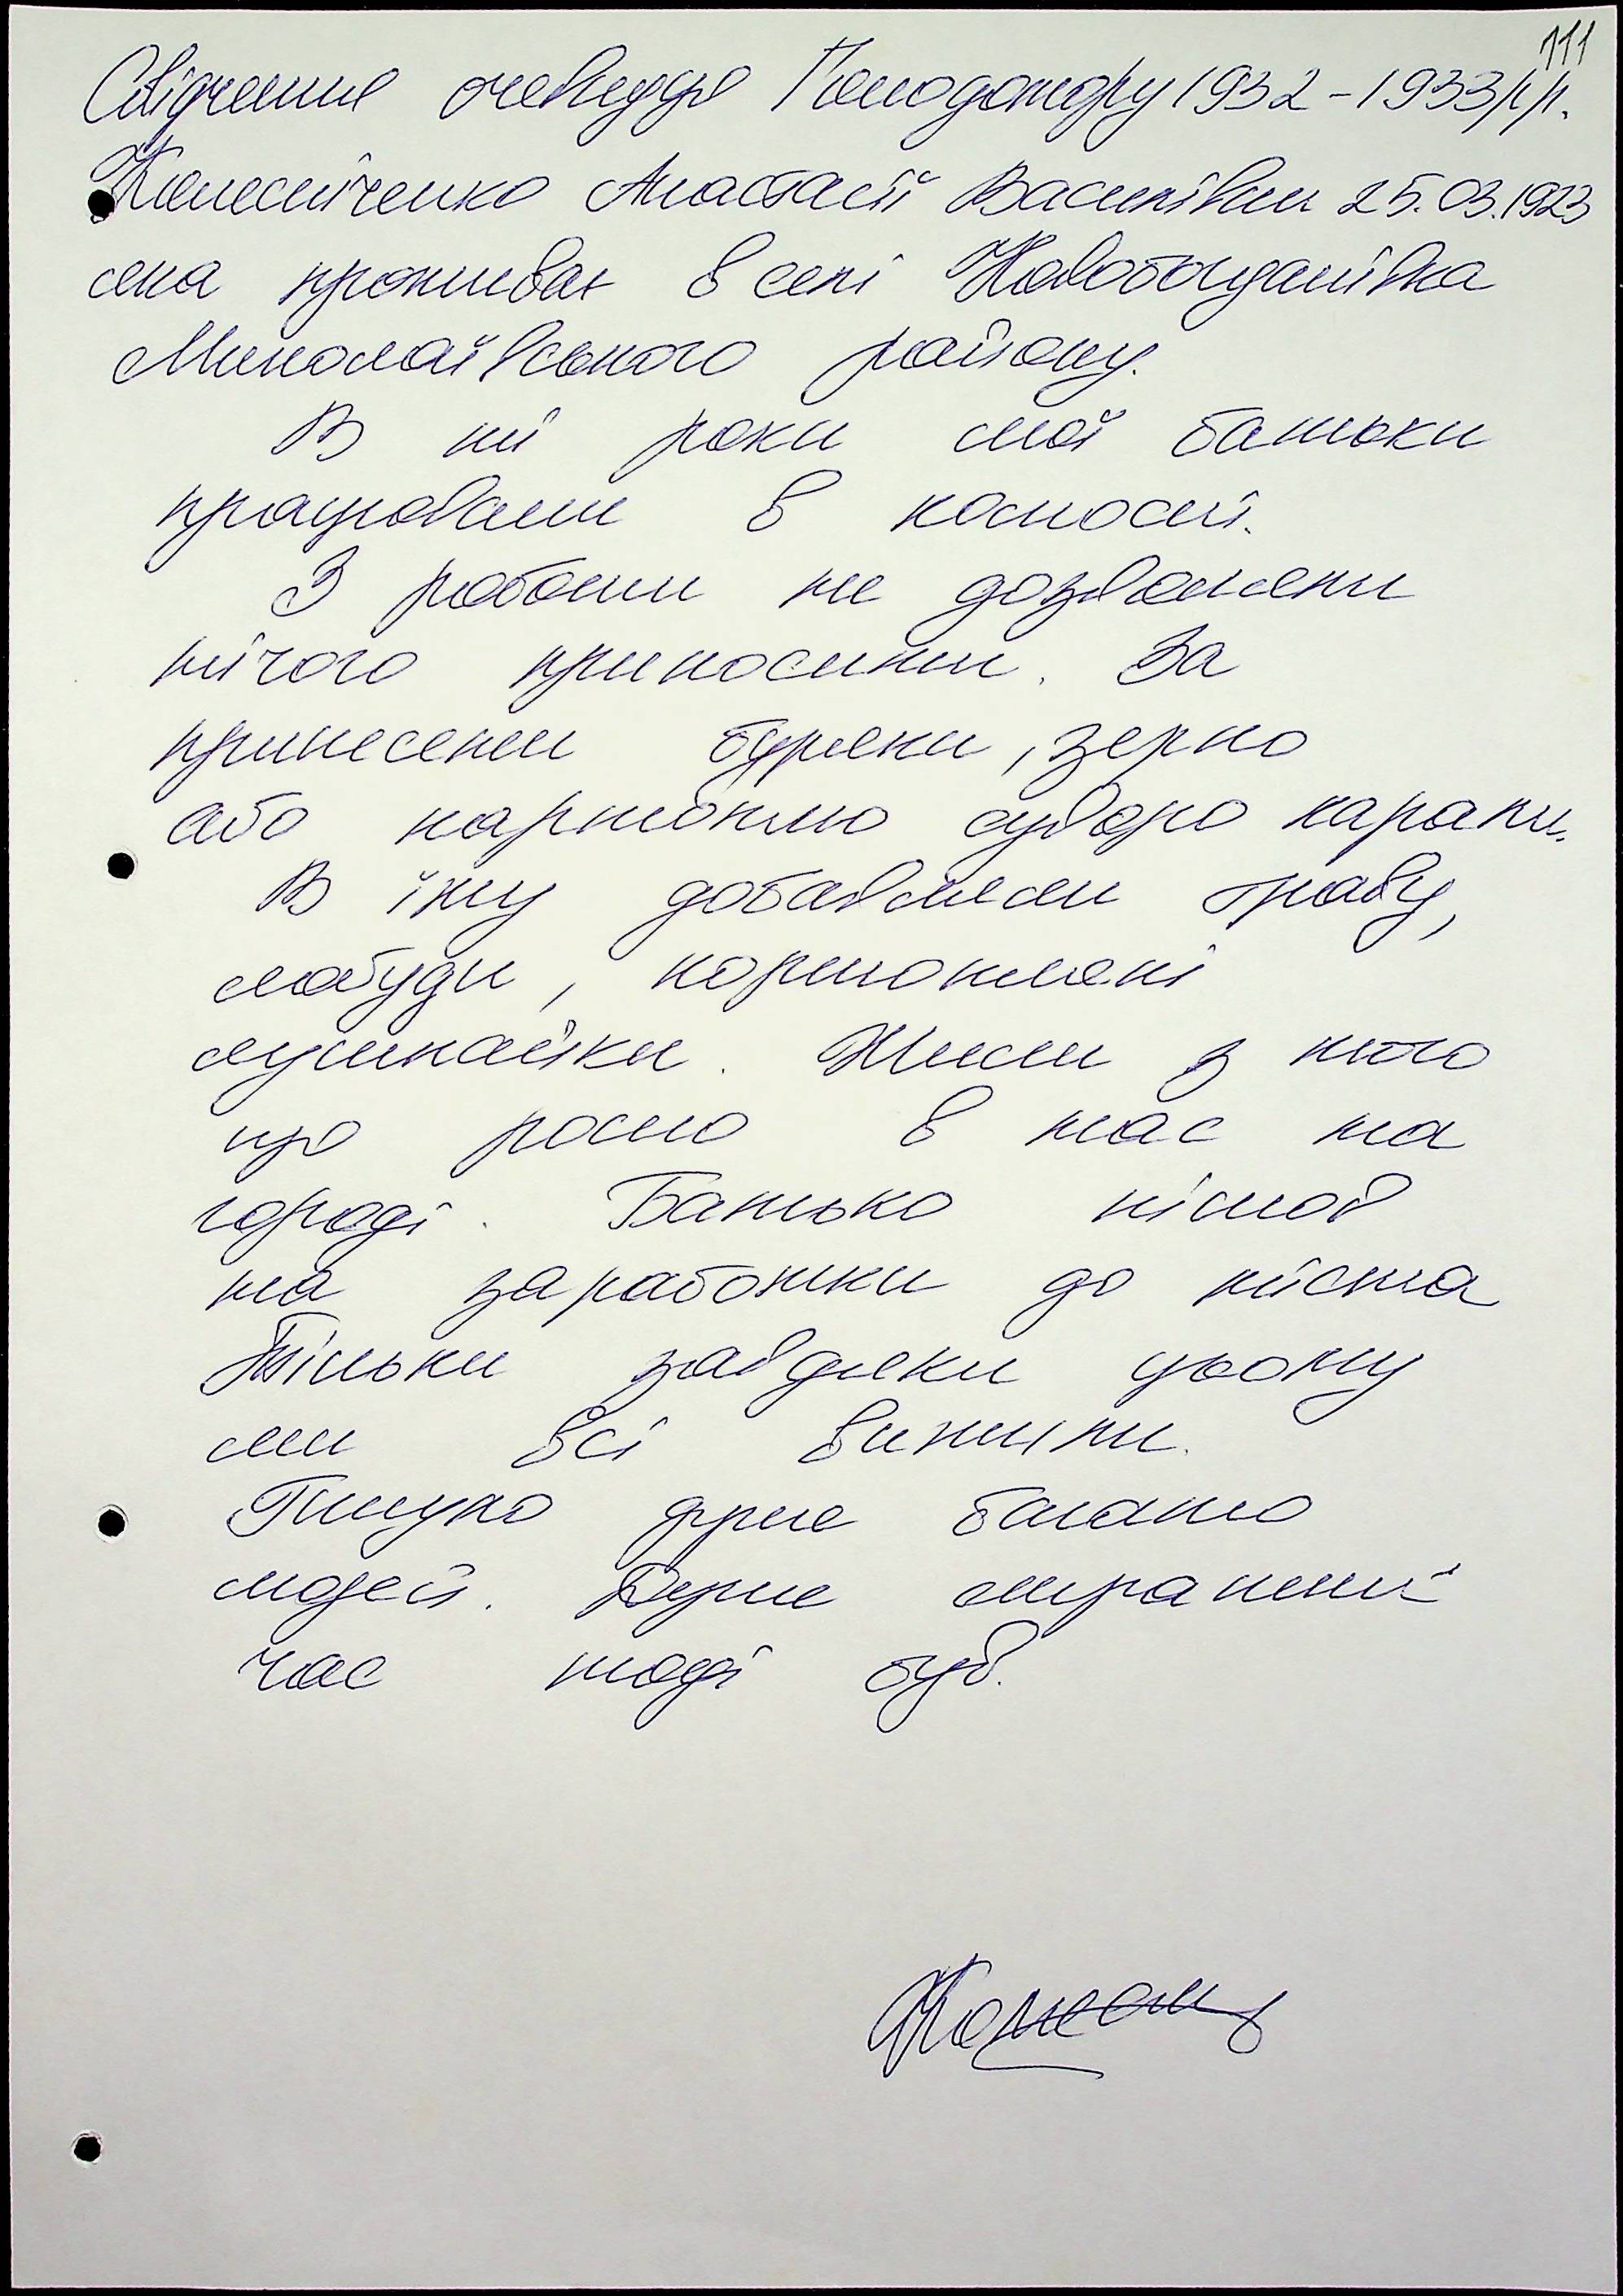 111
Свідчення очевидця Голодомору 1932-1933 р.р.
Колесніченко Анастасії Василівни 25.03.1923
яка проживає в селі Новобогданівка
Миколаївського району.
В ті роки мої батьки
працювали в колгоспі.
З роботи не дозволяли
нічого приносити. За
принесені буряки, зерно
або картоплю суворо карали.
В їжу добавляли траву,
лободу, картопляні
лушпайки. Жили з того
що росло в нас на
городі. Батько пішов
на заработки до міста
Тільки завдяки цьому
ми всі вижили.
Гинуло дуже багато
людей. Дуже страшний
час тоді був.